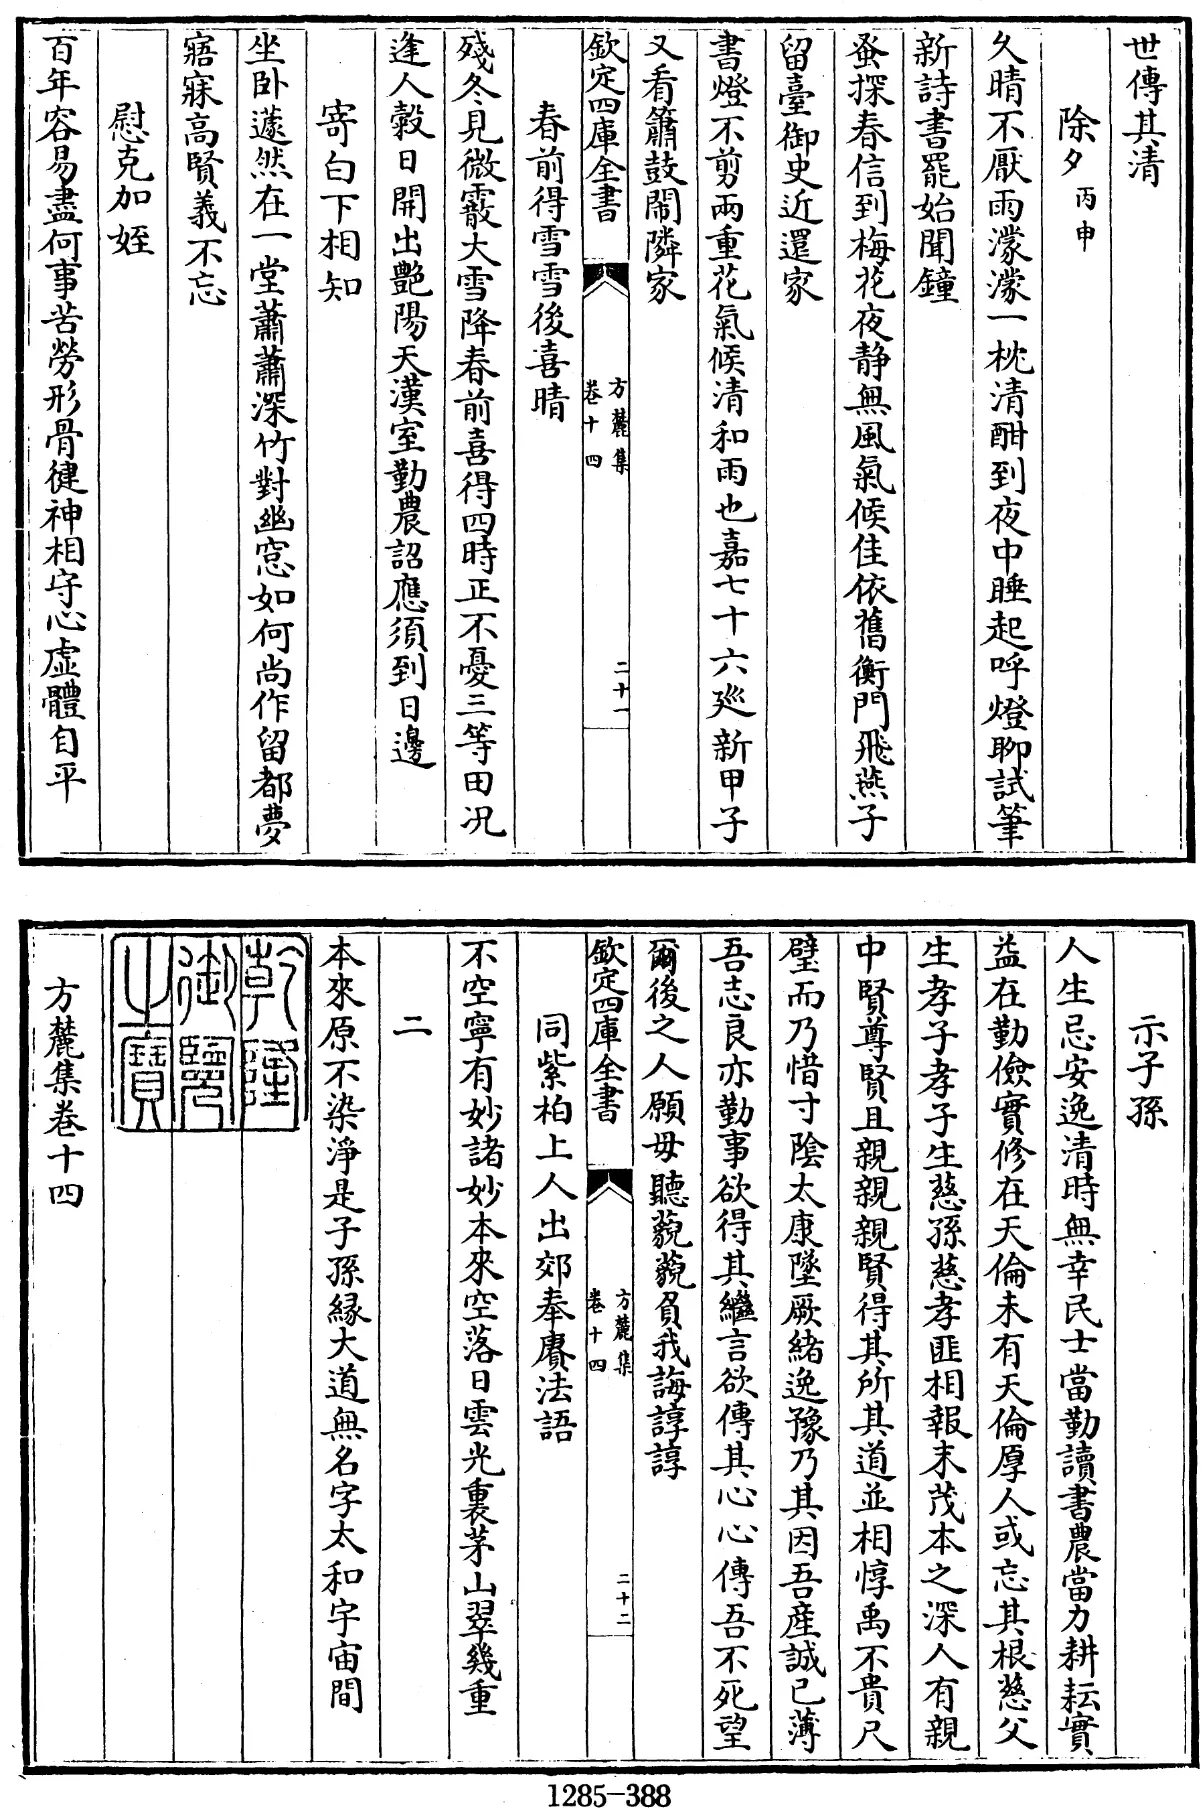 世傳其清
除夕丙申
久晴不厭雨濛濛一枕清酣到夜中睡起呼燈聊試筆
新詩書罷始聞鐘
蚤探春信到梅花夜静無風氣候佳依舊衡門飛燕子
留臺御史近還家
書燈不剪兩重花氣候清和雨也嘉七十六廵新甲子
又看簫鼓鬧隣家
欽定四庫全書
方麓集
卷十四
二十一
春前得雪雪後喜晴
殘冬見微霰大雪降春前喜得四時正不憂三等田况
逢人穀日開出艷陽天漢室勤農詔應須到日邊
寄白下相知
坐卧蘧然在一堂蕭蕭深竹對幽窓如何尚作留都夢
寤寐高賢義不忘
慰克加姪
百年容易盡何事苦勞形骨健神相守心虛體自平
示子孫
人生忌安逸清時無幸民士當勤讀書農當力耕耘實
益在勤儉實修在天倫未有天倫厚人或忘其根慈父
生孝子孝子生慈孫慈孝匪相報末茂本之深人有親
中賢尊賢且親親親賢得其所其道並相惇禹不貴尺
璧而乃惜寸陰太康墜厥緒逸豫乃其因吾産誠已薄
吾志良亦勤事欲得其繼言欲傳其心心傳吾不死望
爾後之人願毋聽藐藐負我誨諄諄
欽定四庫全書
方麓集
卷十四
二十二
同紫柏上人出郊奉賡法語
不空寧有妙諸妙本來空落日雲光裏茅山翠幾重
二
本來原不染淨是子孫緣大道無名字太和宇宙間
乾隆
御覽
之寶
方麓集卷十四
1285-388